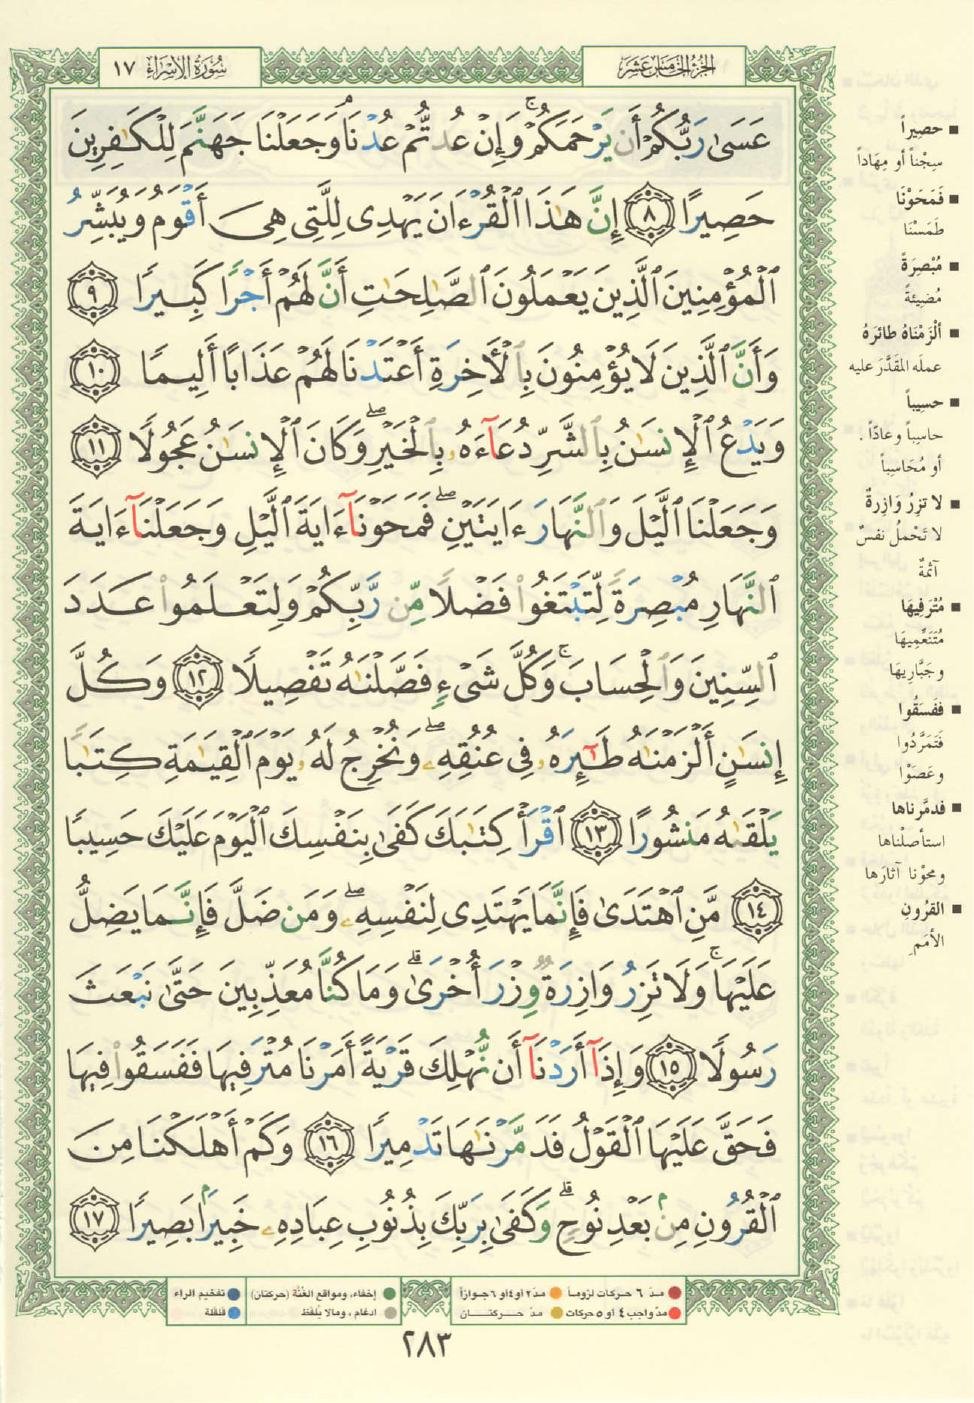 الجزء الخامس عشر
سُورَةُ الإِسْرَاءِ ١٧
عَسَىٰ رَبُّكُمْ أَن يَرْحَمَكُمْ ۚ وَإِنْ عُدتُّمْ عُدْنَا ۘ وَجَعَلْنَا جَهَنَّمَ لِلْكَـٰفِرِينَ
حَصِيرًا ٨ إِنَّ هَـٰذَا ٱلْقُرْءَانَ يَهْدِى لِلَّتِى هِىَ أَقْوَمُ وَيُبَشِّرُ
ٱلْمُؤْمِنِينَ ٱلَّذِينَ يَعْمَلُونَ ٱلصَّـٰلِحَـٰتِ أَنَّ لَهُمْ أَجْرًا كَبِيرًا ٩
وَأَنَّ ٱلَّذِينَ لَا يُؤْمِنُونَ بِٱلْـَٔاخِرَةِ أَعْتَدْنَا لَهُمْ عَذَابًا أَلِيمًا ١٠
وَيَدْعُ ٱلْإِنسَـٰنُ بِٱلشَّرِّ دُعَآءَهُۥ بِٱلْخَيْرِ ۖ وَكَانَ ٱلْإِنسَـٰنُ عَجُولًا ١١
وَجَعَلْنَا ٱلَّيْلَ وَٱلنَّهَارَ ءَايَتَيْنِ ۖ فَمَحَوْنَآ ءَايَةَ ٱلَّيْلِ وَجَعَلْنَآ ءَايَةَ
ٱلنَّهَارِ مُبْصِرَةً لِّتَبْتَغُوا۟ فَضْلًا مِّن رَّبِّكُمْ وَلِتَعْلَمُوا۟ عَدَدَ
ٱلسِّنِينَ وَٱلْحِسَابَ ۚ وَكُلَّ شَىْءٍ فَصَّلْنَـٰهُ تَفْصِيلًا ١٢ وَكُلَّ
إِنسَـٰنٍ أَلْزَمْنَـٰهُ طَـٰٓئِرَهُۥ فِى عُنُقِهِۦ ۖ وَنُخْرِجُ لَهُۥ يَوْمَ ٱلْقِيَـٰمَةِ كِتَـٰبًا
يَلْقَىٰهُ مَنشُورًا ١٣ ٱقْرَأْ كِتَـٰبَكَ كَفَىٰ بِنَفْسِكَ ٱلْيَوْمَ عَلَيْكَ حَسِيبًا
١٤ مَّنِ ٱهْتَدَىٰ فَإِنَّمَا يَهْتَدِى لِنَفْسِهِۦ ۖ وَمَن ضَلَّ فَإِنَّمَا يَضِلُّ
عَلَيْهَا ۚ وَلَا تَزِرُ وَازِرَةٌ وِزْرَ أُخْرَىٰ ۗ وَمَا كُنَّا مُعَذِّبِينَ حَتَّىٰ نَبْعَثَ
رَسُولًا ١٥ وَإِذَآ أَرَدْنَآ أَن نُّهْلِكَ قَرْيَةً أَمَرْنَا مُتْرَفِيهَا فَفَسَقُوا۟ فِيهَا
فَحَقَّ عَلَيْهَا ٱلْقَوْلُ فَدَمَّرْنَـٰهَا تَدْمِيرًا ١٦ وَكَمْ أَهْلَكْنَا مِنَ
ٱلْقُرُونِ مِنۢ بَعْدِ نُوحٍ ۗ وَكَفَىٰ بِرَبِّكَ بِذُنُوبِ عِبَادِهِۦ خَبِيرًۢا بَصِيرًا ١٧
■ حصيراً
سِجْناً أو مِهَاداً
■ فَمَحَوْنَا
طَمَسْنَا
■ مُبْصِرَةً
مُضِيئةً
■ ألْزَمْنَاهُ طائرَهُ
عملَه المقَدَّرَ عليه
■ حسِيباً
حاسِباً وعادّاً.
أو مُحَاسِباً
■ لا تزِرُ وَازِرةٌ
لا تَحْملُ نفسٌ
آثمَةٌ
■ مُتْرَفِيهَا
مُتَنَعِّمِيهَا
وجَبَّارِيهَا
■ ففسَقُوا
فَتَمَرَّدُوا
وعَصَوْا
■ فدمَّرناها
استأصلْناها
ومحوْنا آثارَها
■ القرُونِ
الأمَمِ
مدّ ٦ حركات لزوماً
مدّ ٢ او ٤ او ٦ جوازاً
إخفاء، ومواقع الغُنَّة (حركتان)
تفخيم الراء
مدّ واجب ٤ او ٥ حركات
مدّ حركتان
ادغام، ومالا يُلفَظ
قلقلة
٢٨٣